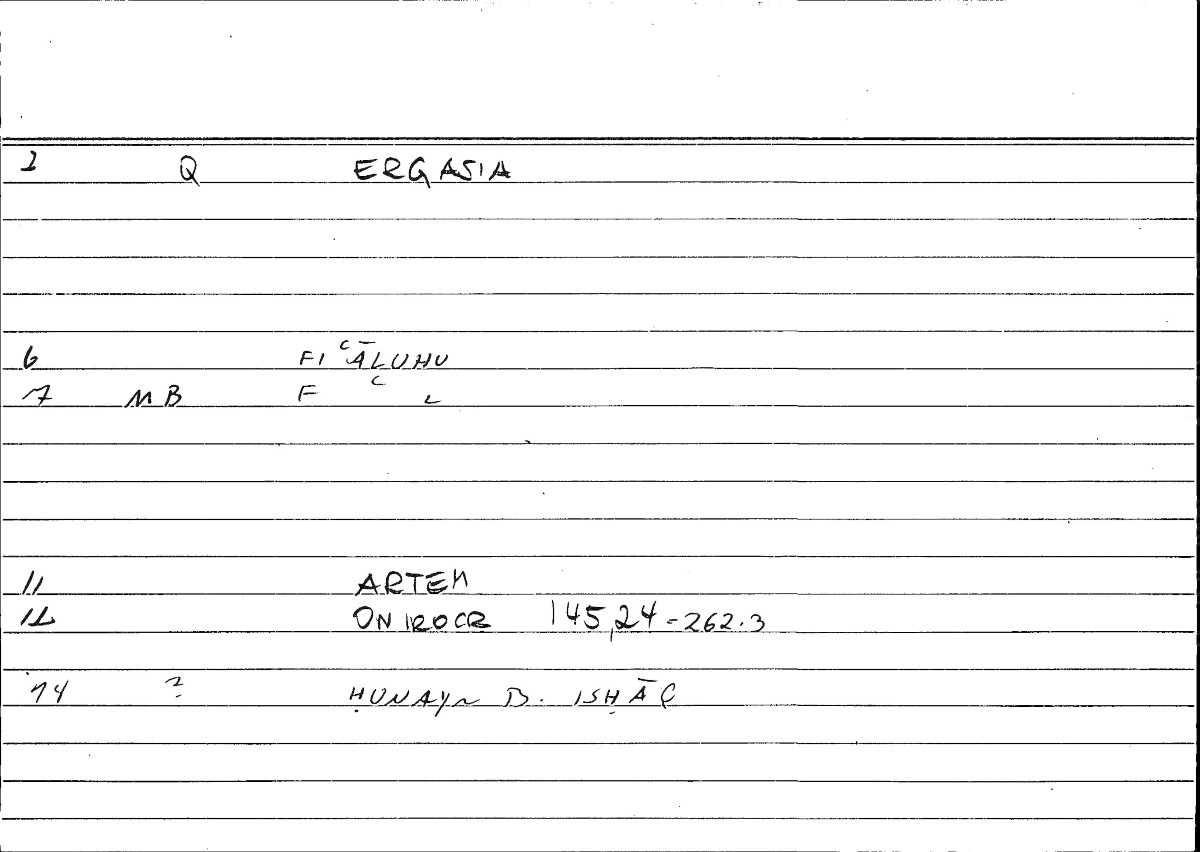 1 Q ERGASIA
6 FI ʿĀLUHU
7 MB F ʿ L
11 ARTEM
12 ONIROCR 145,24-262.3
14 ? ḤUNAYN B. ISḤĀQ